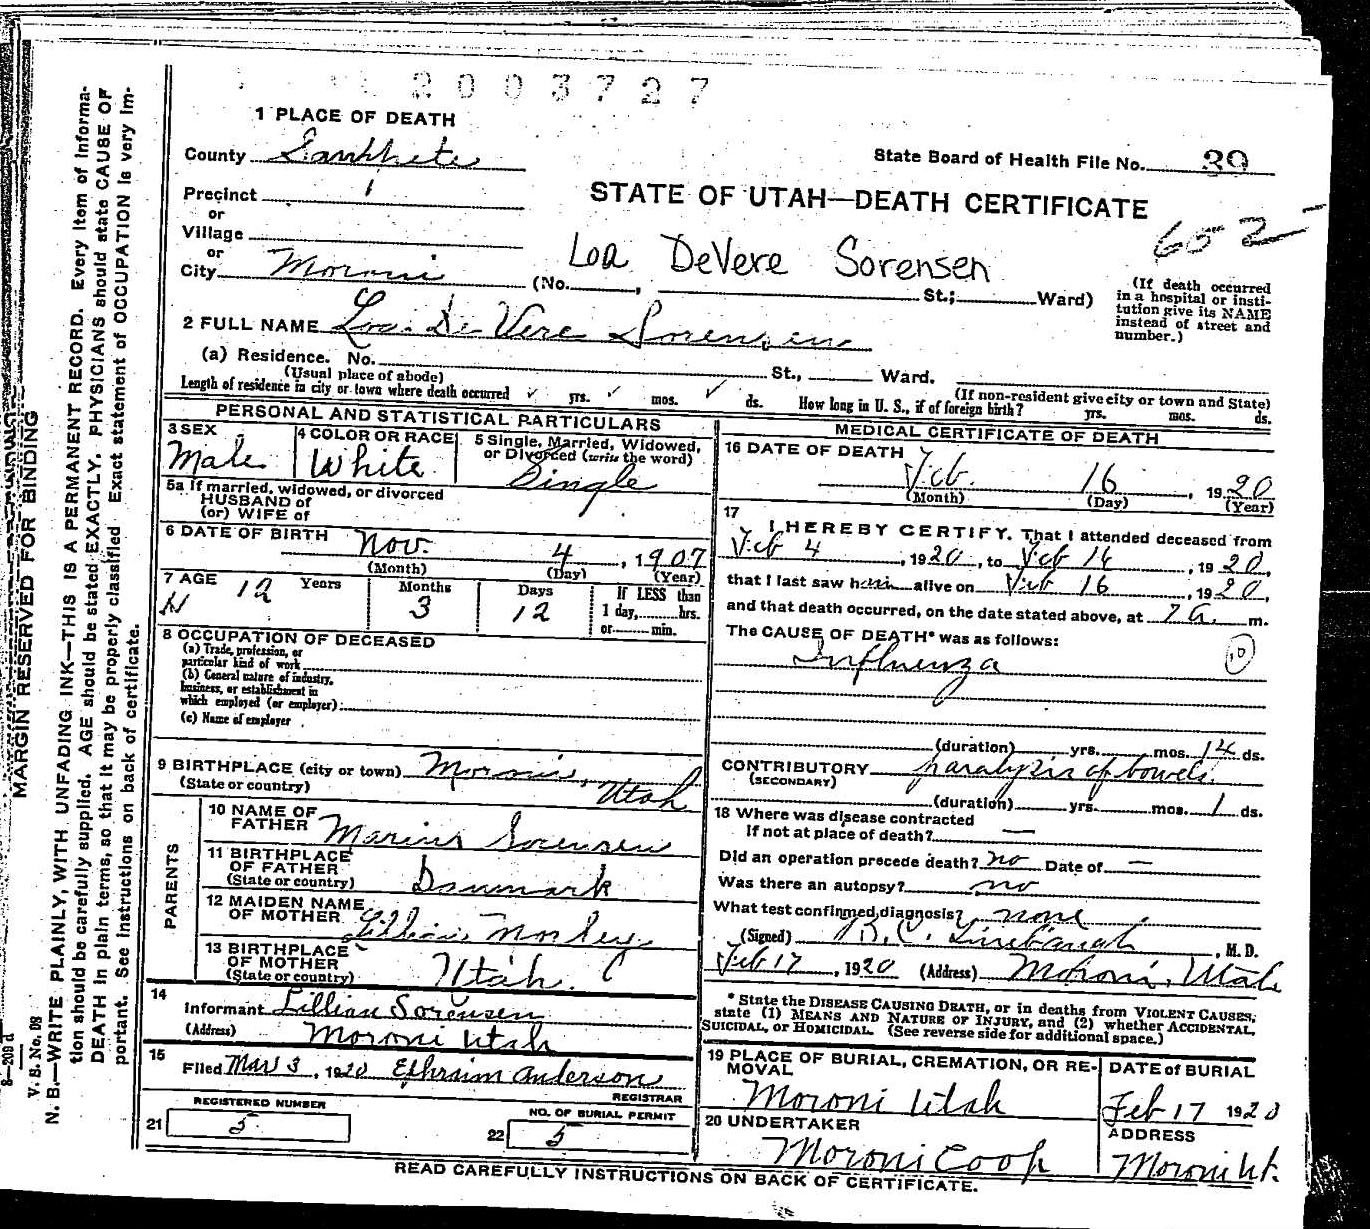 2003727
1 PLACE OF DEATH
County Sanpete
State Board of Health File No. 39
Precinct 1
STATE OF UTAH—DEATH CERTIFICATE
652
or
Village
or
City Moroni (No. , St.; Ward)
Loa DeVere Sorensen
(If death occurred in a hospital or institution give its NAME instead of street and number.)
2 FULL NAME Loa De Vere Sorensen
(a) Residence. No. St., Ward.
(Usual place of abode) (If non-resident give city or town and State)
Length of residence in city or town where death occurred yrs. mos. ds. How long in U. S., if of foreign birth? yrs. mos. ds.
PERSONAL AND STATISTICAL PARTICULARS
3 SEX Male
4 COLOR OR RACE White
5 Single, Married, Widowed, or Divorced (write the word) Single
5a If married, widowed, or divorced
HUSBAND of
(or) WIFE of
6 DATE OF BIRTH Nov. 4, 1907
(Month) (Day) (Year)
7 AGE 12 Years 3 Months 12 Days
If LESS than
1 day,........hrs.
or........min.
8 OCCUPATION OF DECEASED
(a) Trade, profession, or
particular kind of work
(b) General nature of industry,
business, or establishment in
which employed (or employer)
(c) Name of employer
9 BIRTHPLACE (city or town) Moroni,
(State or country) Utah
PARENTS
10 NAME OF FATHER Marius Sorensen
11 BIRTHPLACE OF FATHER
(State or country) Danmark
12 MAIDEN NAME OF MOTHER Lillian Morley
13 BIRTHPLACE OF MOTHER
(State or country) Utah.
14
Informant Lillian Sorensen
(Address) Moroni Utah
15
Filed Mar 3, 1920 Ephraim Anderson
REGISTRAR
REGISTERED NUMBER
21 5
NO. OF BURIAL PERMIT
22 5
MEDICAL CERTIFICATE OF DEATH
16 DATE OF DEATH
Feb. 16, 1920
(Month) (Day) (Year)
17
I HEREBY CERTIFY, That I attended deceased from
Feb 4, 1920, to Feb 16, 1920,
that I last saw him alive on Feb 16, 1920,
and that death occurred, on the date stated above, at 7 a. m.
The CAUSE OF DEATH* was as follows:
Influenza
10
(duration) yrs. mos. 14 ds.
CONTRIBUTORY paralyzis of bowels.
(SECONDARY)
(duration) yrs. mos. 1 ds.
18 Where was disease contracted
If not at place of death? —
Did an operation precede death? no Date of —
Was there an autopsy? no
What test confirmed diagnosis? none
(Signed) , M. D.
Feb 17, 1920 (Address) Moroni, Utah
* State the DISEASE CAUSING DEATH, or in deaths from VIOLENT CAUSES, state (1) MEANS AND NATURE OF INJURY, and (2) whether ACCIDENTAL, SUICIDAL, or HOMICIDAL. (See reverse side for additional space.)
19 PLACE OF BURIAL, CREMATION, OR REMOVAL
Moroni Utah
DATE of BURIAL
Feb 17 1920
20 UNDERTAKER
Moroni Coop
ADDRESS
Moroni Ut.
READ CAREFULLY INSTRUCTIONS ON BACK OF CERTIFICATE.
MARGIN RESERVED FOR BINDING
N. B.—WRITE PLAINLY, WITH UNFADING INK—THIS IS A PERMANENT RECORD. Every item of information should be carefully supplied. AGE should be stated EXACTLY. PHYSICIANS should state CAUSE OF DEATH in plain terms, so that it may be properly classified. Exact statement of OCCUPATION is very important. See instructions on back of certificate.
V. S. No. 98